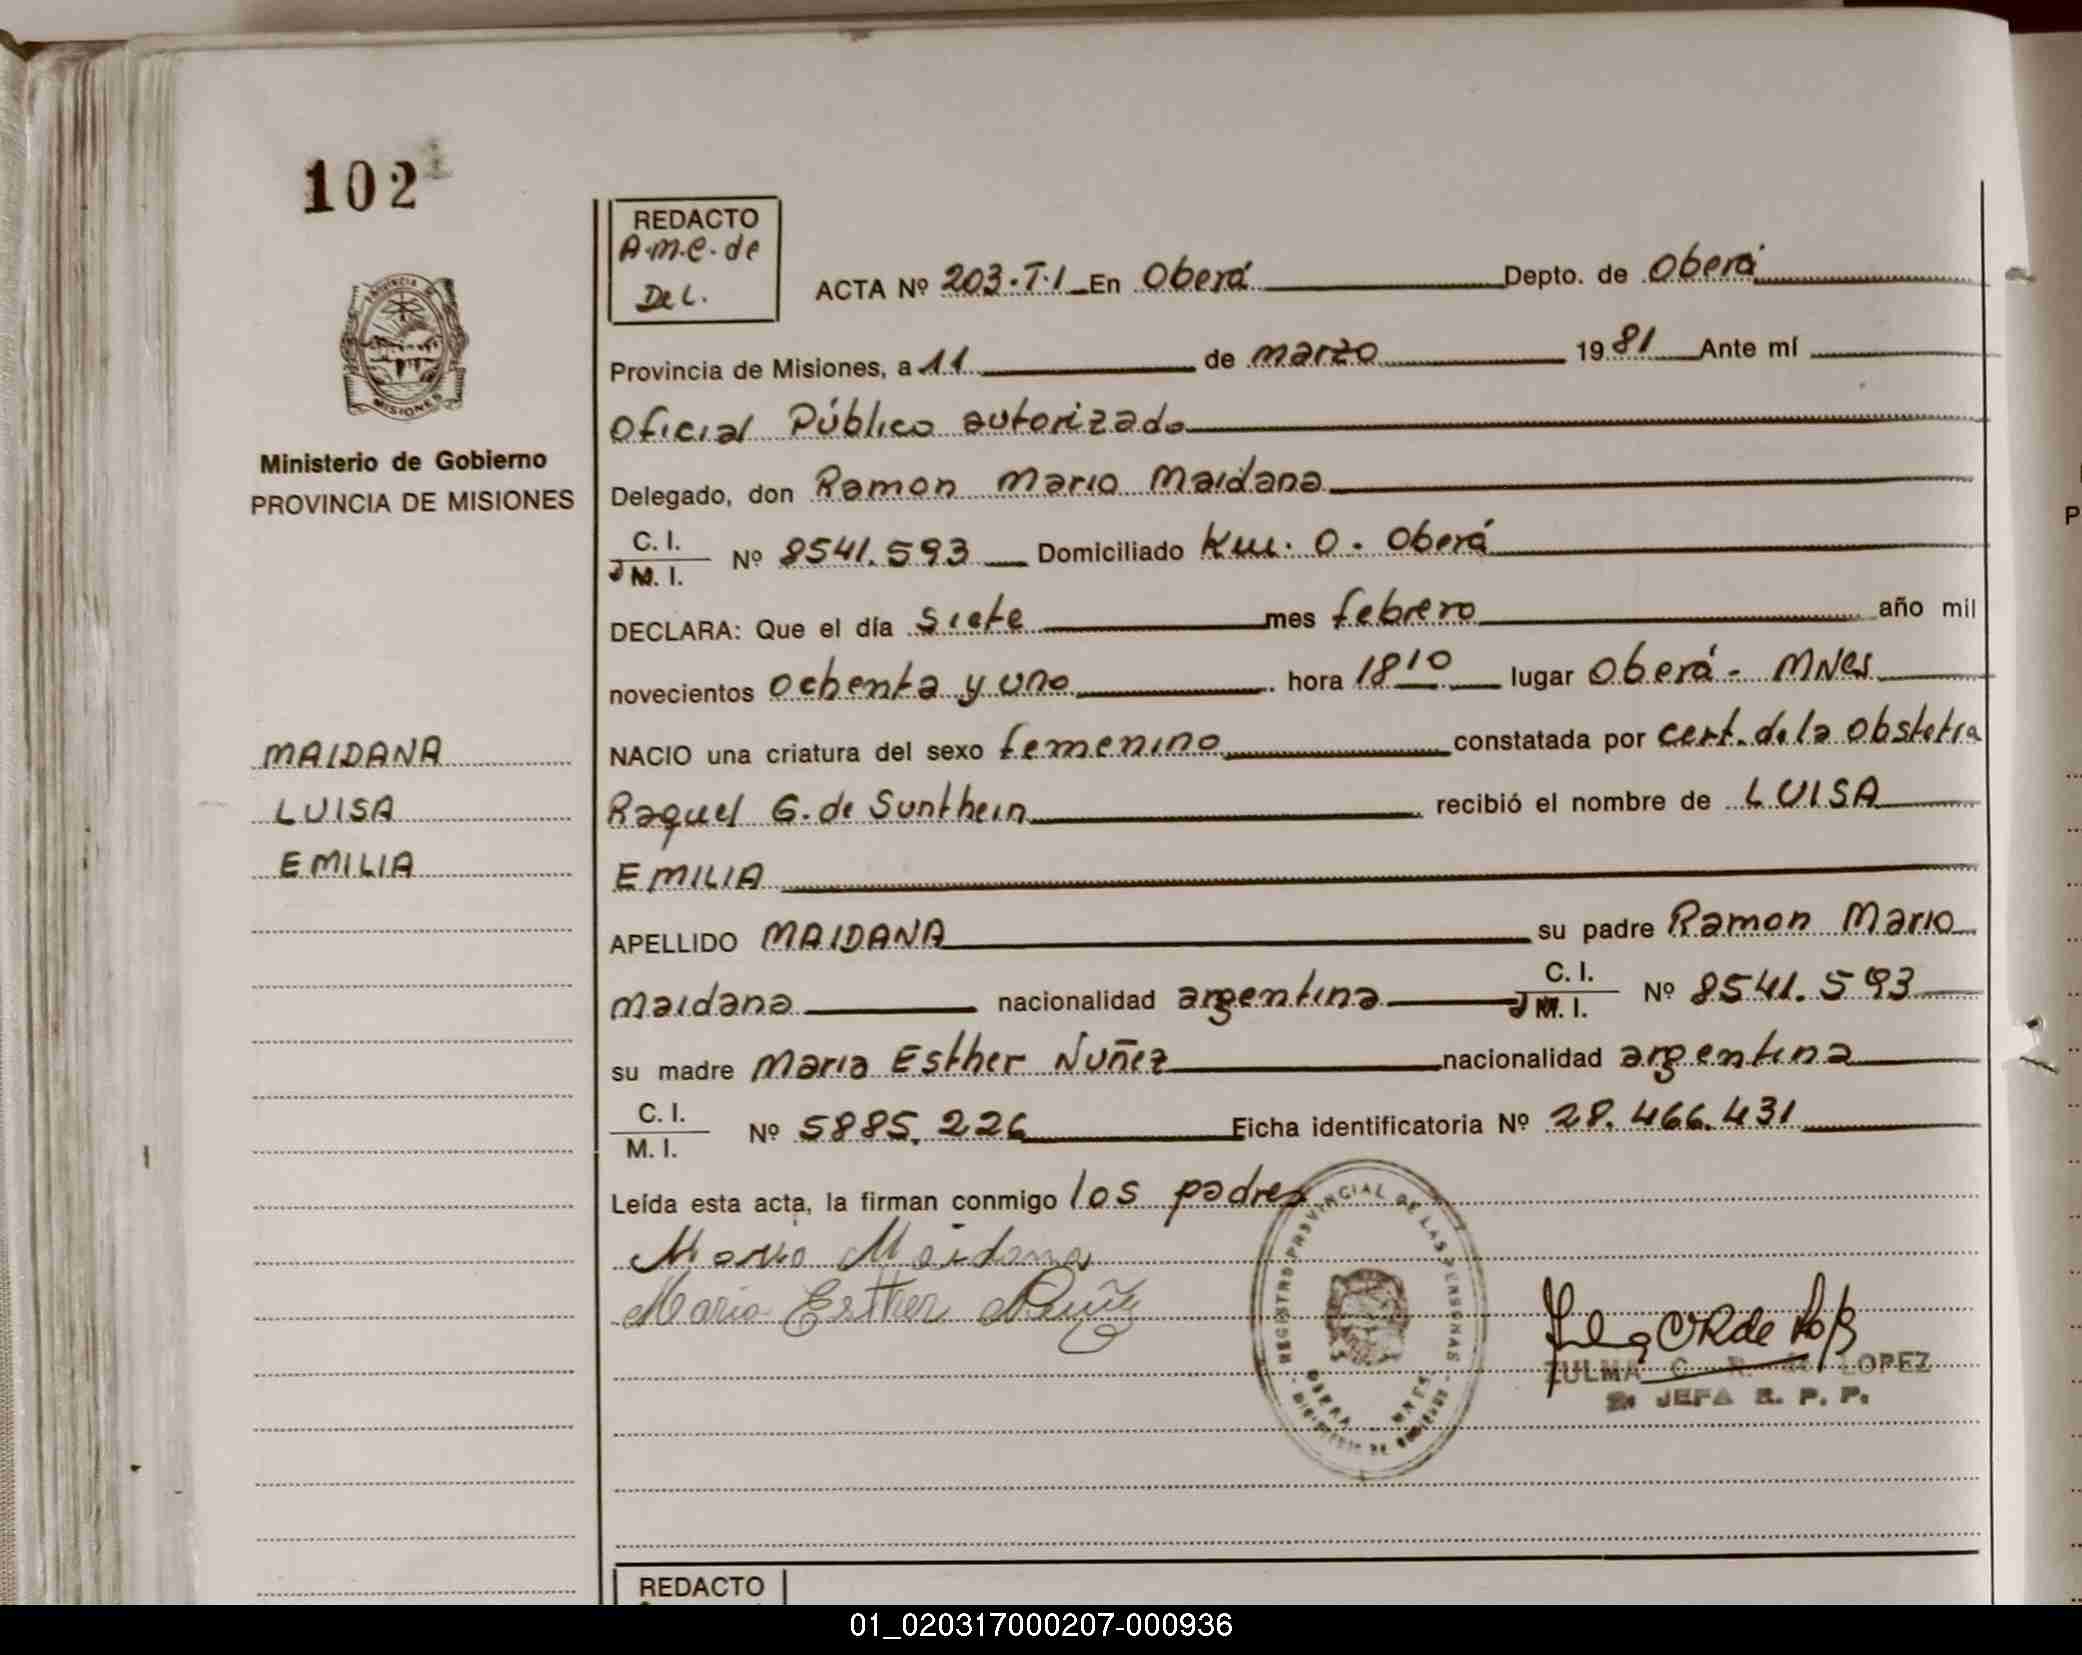 102
REDACTO
A.M.C. de
De L.
ACTA Nº 203.T.1 En Oberá Depto. de Oberá
Provincia de Misiones, a 11 de marzo 1981 Ante mí
Oficial Público autorizado
Delegado, don Ramon Mario Maidana
C. I.
M. I. Nº 8541.593 Domiciliado Km. 0. Oberá
DECLARA: Que el día siete mes febrero año mil
novecientos ochenta y uno hora 18 10 lugar Oberá - MNes
NACIO una criatura del sexo femenino constatada por cert. de la Obstetra
Raquel G. de Sunthein recibió el nombre de LUISA
EMILIA
APELLIDO MAIDANA su padre Ramon Mario
Maidana nacionalidad argentina C. I. M. I. Nº 8541.593
su madre Maria Esther Nuñez nacionalidad argentina
C. I.
M. I. Nº 5885.226 Ficha identificatoria Nº 28.466.431
Leída esta acta, la firman conmigo los padres
Mario Maidana
Maria Esther Nuñez
REGISTRO PROVINCIAL DE LAS PERSONAS
OBERA MNES
MINISTERIO DE GOBIERNO
ZULMA C. R. de LOPEZ
2ª JEFA R. P. P.
PROVINCIA DE
MISIONES
Ministerio de Gobierno
PROVINCIA DE MISIONES
MAIDANA
LUISA
EMILIA
REDACTO
P
01_020317000207-000936